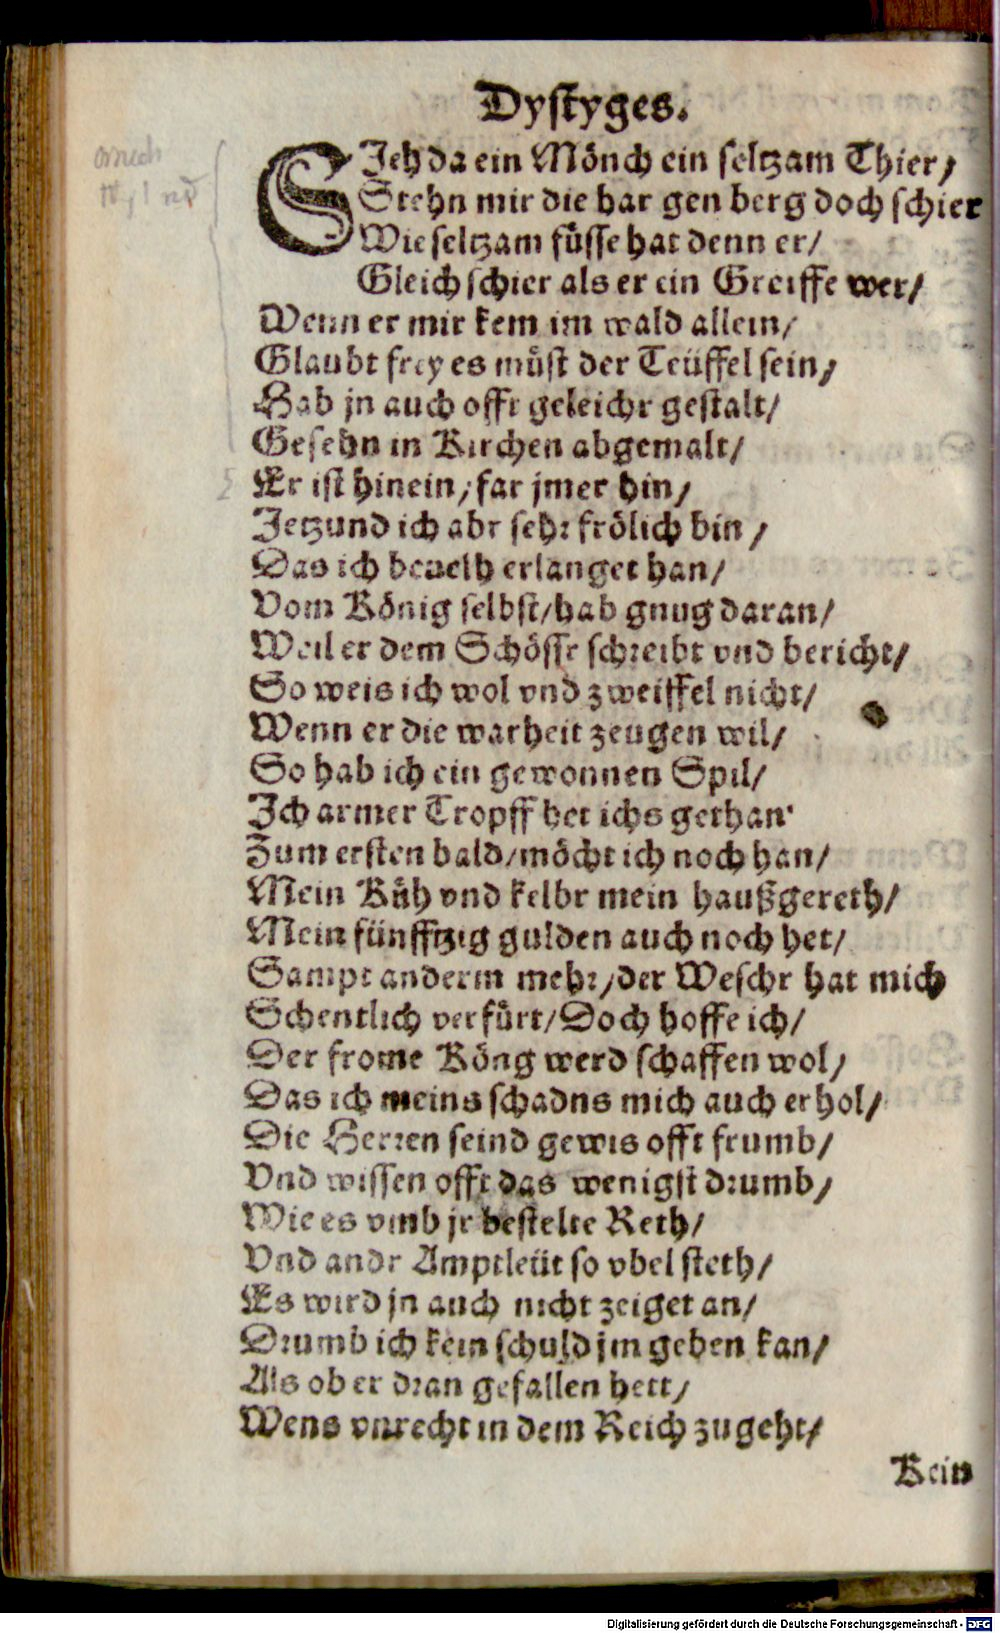 Dystyges.
SJeh da ein Mönch ein seltzam Thier/
Stehn mir die har gen berg doch schier
Wie seltzam füsse hat denn er/
Gleich schier als er ein Greiffe wer/
Wenn er mir kem im wald allein/
Glaubt frey es müst der Teüffel sein/
Hab jn auch offt geleichr gestalt/
Gesehn in Kirchen abgemalt/
Er ist hinein/ far jmer hin/
Jetzund ich abr sehr frölich bin/
Das ich beuelh erlanget han/
Vom König selbst/ hab gnug daran/
Weil er dem Schösse schreibt vnd bericht/
So weis ich wol vnd zweiffel nicht/
Wenn er die warheit zeugen wil/
So hab ich ein gewonnen Spil/
Jch armer Tropff het ichs gethan
Zum ersten bald/ möcht ich noch han/
Mein Küh vnd kelbr mein haußgereth/
Mein fünfftzig gulden auch noch het/
Sampt anderm mehr/ derWeschr hat mich
Schentlich verfürt/ Doch hoffe ich/
Der frome Köng werd schaffen wol/
Das ich meins schadns mich auch erhol/
Die Herren seind gewis offt frumb/
Vnd wissen offt das wenigst drumb/
Wie es vmb jr bestelte Reth/
Vnd andr Amptleüt so vbel steth/
Es wird jn auch nicht zeiget an/
Drumb ich kein schuld jm geben kan/
Als ob er dran gefallen hett/
Wens vnrecht in dem Reich zugeht/
Kein
Digitalisierung gefördert durch die Deutsche Forschungsgemeinschaft - DFG